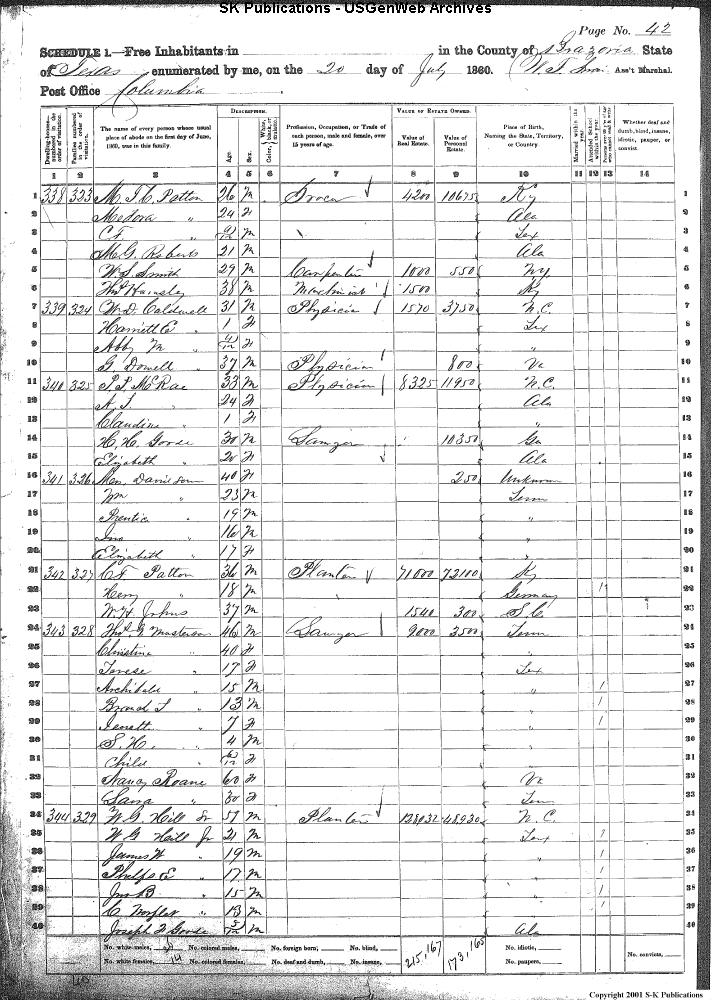 SK Publications - USGenWeb Archives
Page No. 42
SCHEDULE 1.—Free Inhabitants in in the County of Brazoria State
of Texas enumerated by me, on the 20 day of July 1860. Ass't Marshal.
Post Office Columbia
Dwelling-houses—numbered in the order of visitation. Families numbered in the order of visitation. The name of every person whose usual place of abode on the first day of June, 1860, was in this family. DESCRIPTION. Age. Sex. Color, White, black, or mulatto. Profession, Occupation, or Trade of each person, male and female, over 15 years of age. VALUE OF ESTATE OWNED. Value of Real Estate. Value of Personal Estate. Place of Birth, Naming the State, Territory, or Country. Married within the year. Attended School within the year. Whether deaf and dumb, blind, insane, idiotic, pauper, or convict.
1 2 3 4 5 6 7 8 9 10 11 12 13 14
1 338 323 M. J. C. Patton 26 M Grocer 4200 10675 Ky 1
2 Medora " 24 F Ala 2
3 C. F. " M Tex 3
4 M. G. Roberts 21 M Ala 4
5 W. S. Smith 29 M Carpenter 1000 550 NY 5
6 Thos 38 M 1500 Ky 6
7 339 324 W. D. Caldwell 31 M Physician 1570 3750 N.C. 7
8 Harriett E " 1 F Tex 8
9 Abby M " F " 9
10 G. Dowell 37 M Physician 800 Va 10
11 340 325 P. P. McRae 33 M Physician 8325 11950 N.C. 11
12 A. J. " 24 F Ala 12
13 Claudine " 1 F " 13
14 H. H. 30 M Lawyer 10350 Ga 14
15 Elizabeth " 20 F Ala 15
16 341 326 Mrs. Davidson 40 F 250 Unknown 16
17 Wm " 23 M Tenn 17
18 Prentice " 19 M " 18
19 Jno " 16 M " 19
20 Elizabeth " 17 F " 20
21 342 327 C. F. Patton 36 M Planter 71000 72100 Ky 21
22 Henry " 18 M Germany 22
23 W. H. Johns 37 M 1540 300 S.C. 23
24 343 328 Thos. G. Masterson 46 M Lawyer 9000 3500 Tenn 24
25 Christine " 40 F " 25
26 Terese " 17 F Tex 26
27 Archibald " 15 M " 1 27
28 Branch T " 13 M " 1 28
29 " 7 F " 1 29
30 S. H. " 4 M 30
31 Child " F 31
32 Nancy Roane 60 F Va 32
33 " 30 F Tenn 33
34 344 329 W. G. Hill Sr 57 M Planter 48930 N.C. 34
35 W. G. Hill Jr 21 M Texas 1 35
36 James W " 19 M " 1 36
37 Phelps E " 17 M " 1 37
38 Jno B. " 15 M " 1 38
39 C. " 13 M " 39
40 Joseph M Ala 40
No. white males, No. colored males, No. foreign born, No. blind, 215,167 173,165 No. idiotic, No. convicts,
No. white females, 14 No. colored females, No. deaf and dumb, No. insane, No. paupers,
Copyright 2001 S-K Publications